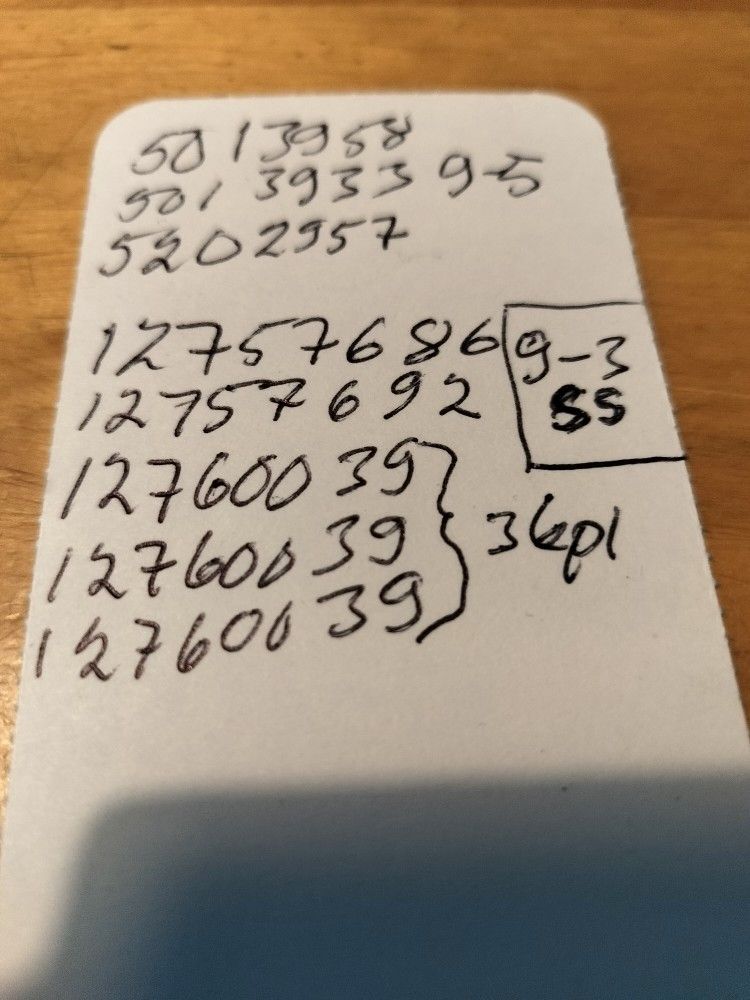 5013958
5013933 9-5
5202957
12757686 9-3
12757692 SS
12760039
12760039 3kpl
12760039